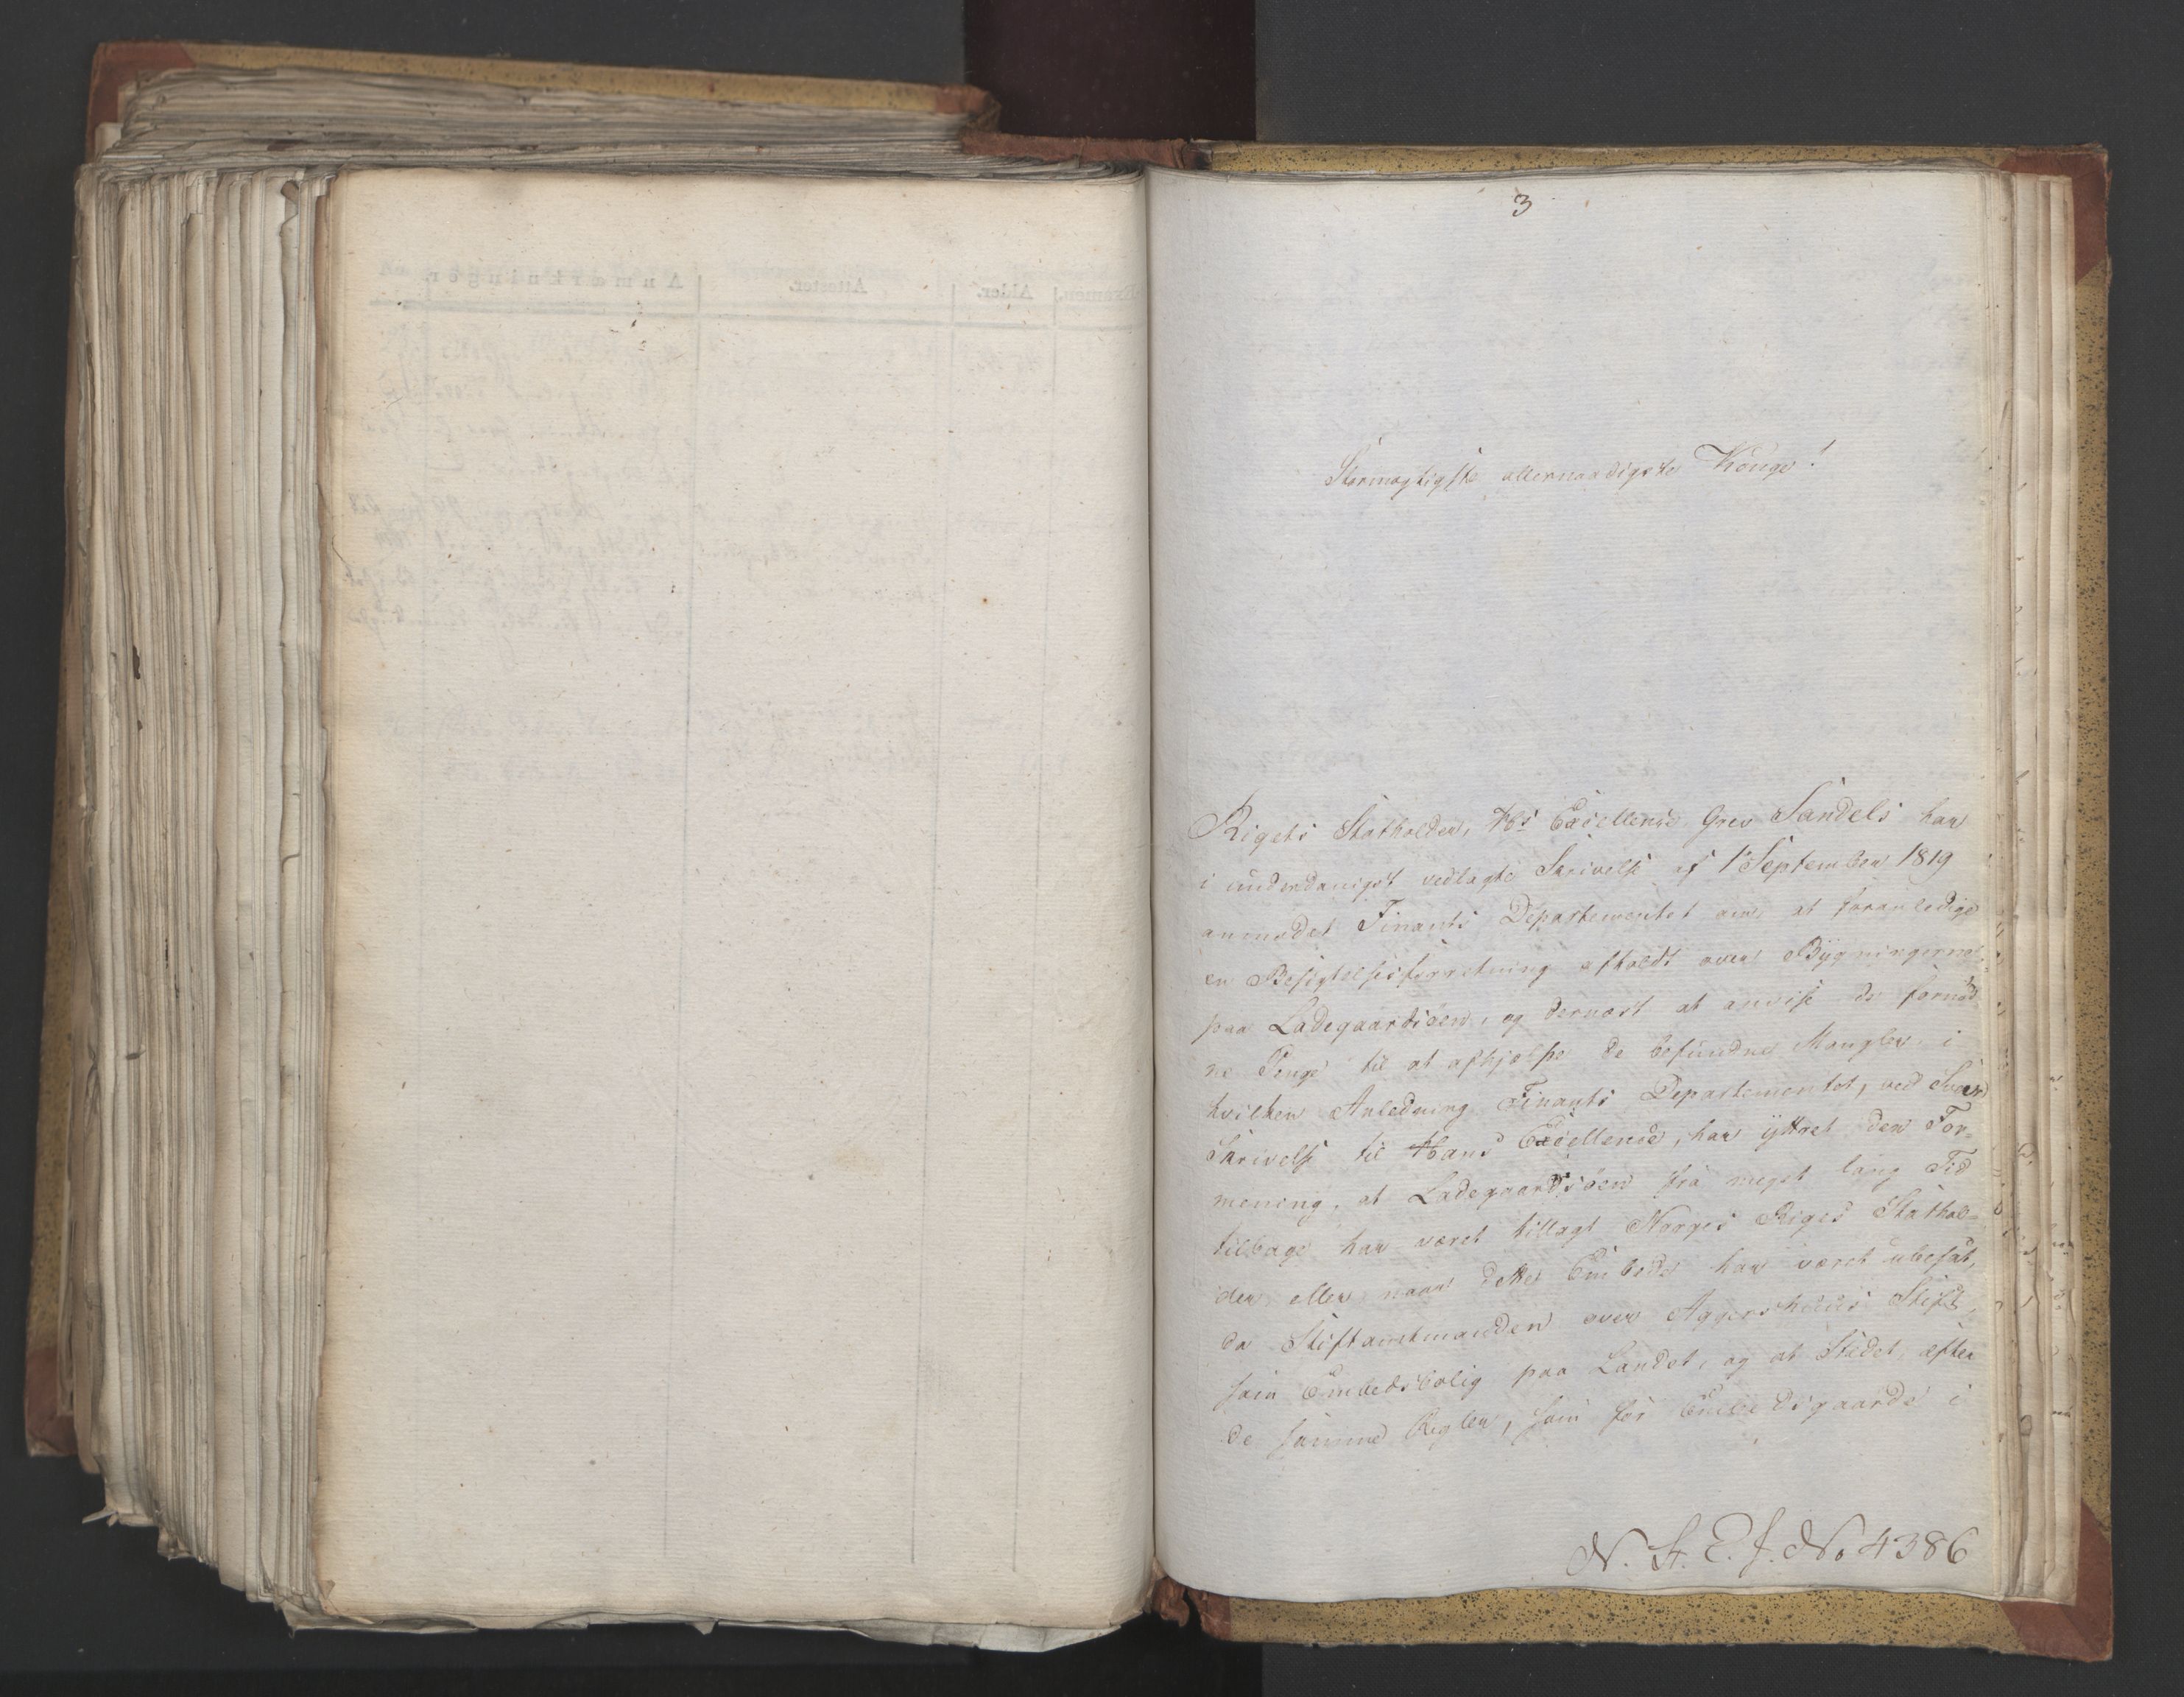 3
Stormægtigste allernaadigste Konge!
Rigets Statholder, Hs Excellence Grev Sandels har
i underdanigst vedlagte Skrivelse af 1 September 1819
anmodet Finants Departementet om, at foranledige
en Besigtelsesforretning afholdt over Bygningerne
paa Ladegaardsöen, og dernæst at anvise de fornød¬
ne Penge til at afhjælpe de befundne Mangler, i
hvilken Anledning Finants Departementet, ved Svar
Skrivelse til Hans Excellence, har yttret den For¬
mening, at Ladegaardsöen fra meget lang Tid
tilbage har været tillagt Norges Riges Stathol¬
der eller naar dette Embede har været ubesat,
da Stiftamtmanden over Aggershuus Stift,
som Embedsbolig paa Landet, og at Stædet, efter
de samme Regler, som for Embedsgaarde i
N. St. E. J. No 4386